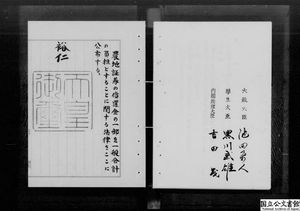 農地証券の償還金の一部を一般会計
の負担とすることに関する法律をここに
公布する。
裕仁
天皇
御璽
大蔵大臣
池田勇人
厚生大臣
黒川武雄
内閣総理大臣
吉田茂
国立公文書館
National Archives of Japan